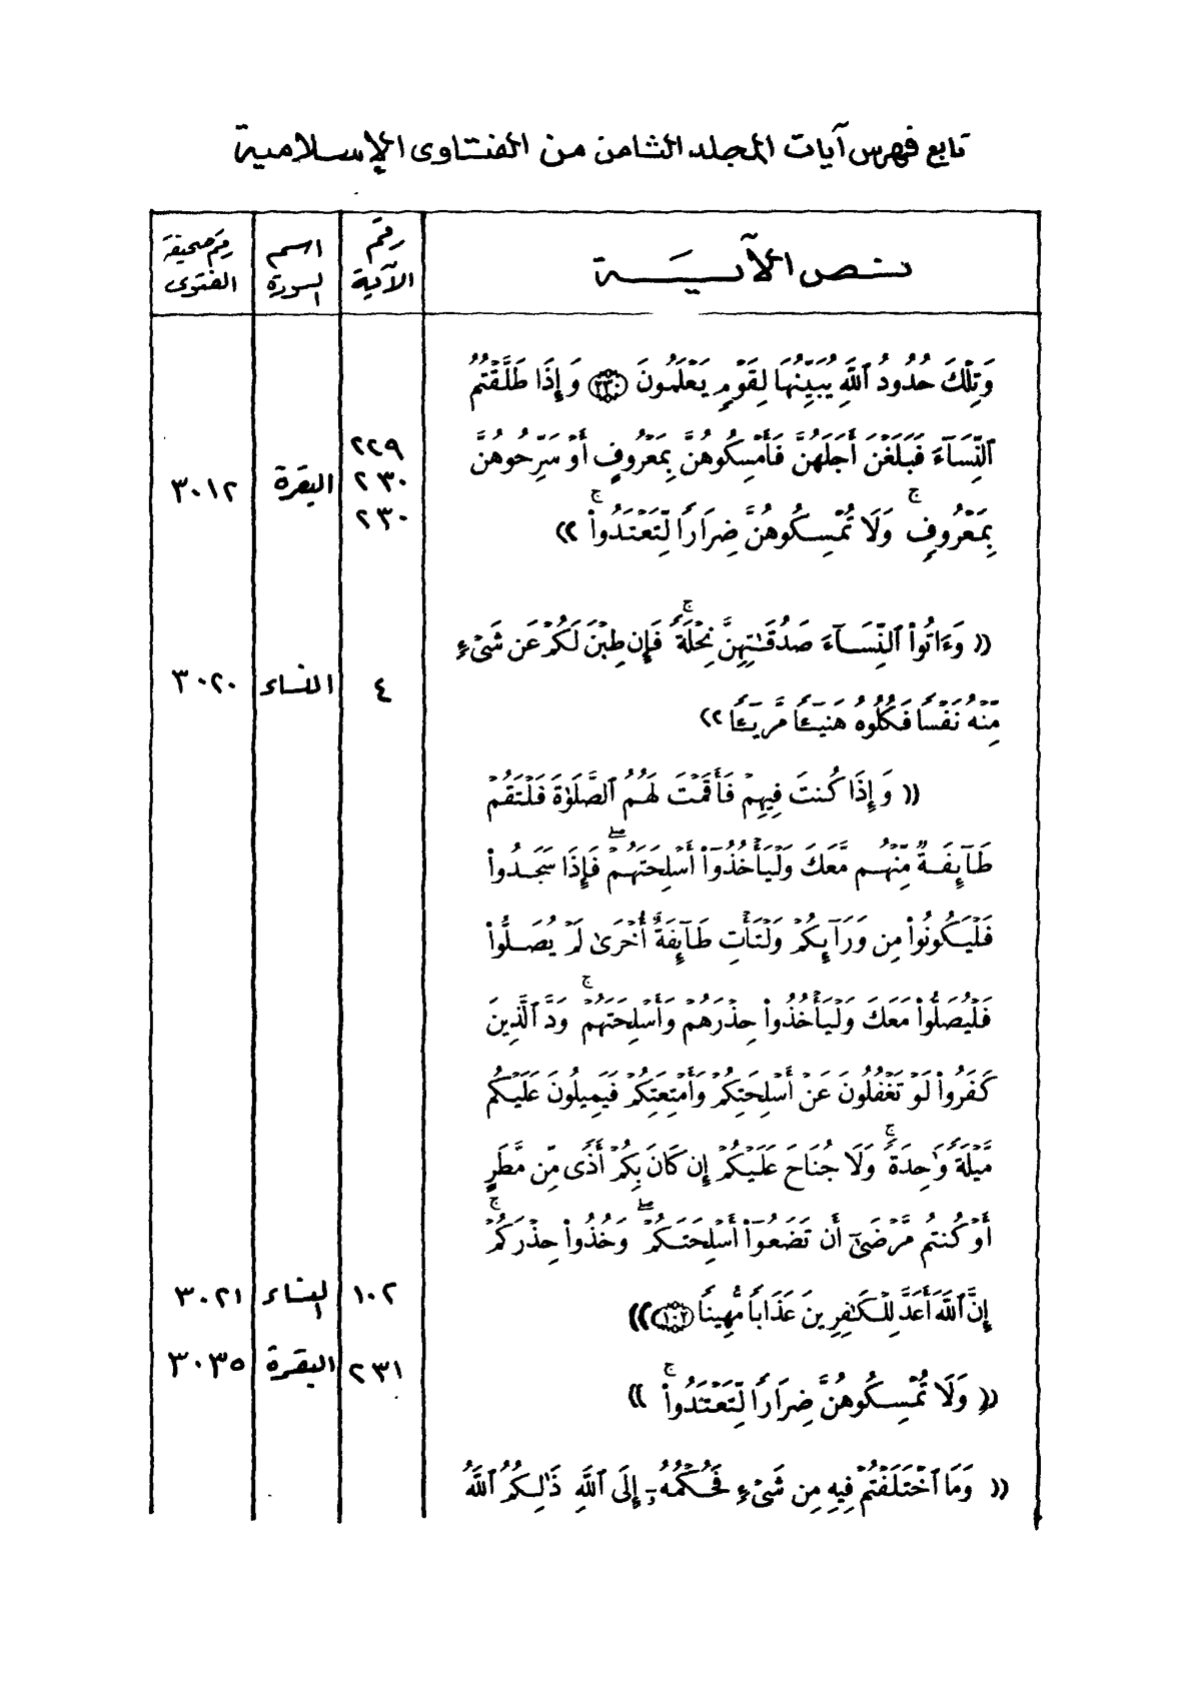 تابع فهرس آيات المجلد الثامن من الفتاوى الإسلامية
نص الآية
رقم الآية
اسم السورة
رقم صحيفة الفتوى
وَتِلْكَ حُدُودُ ٱللَّهِ يُبَيِّنُهَا لِقَوْمٍ يَعْلَمُونَ ﴿٢٣٠﴾ وَإِذَا طَلَّقْتُمُ
ٱلنِّسَآءَ فَبَلَغْنَ أَجَلَهُنَّ فَأَمْسِكُوهُنَّ بِمَعْرُوفٍ أَوْ سَرِّحُوهُنَّ ٢٢٩
٢٣٠ البقرة ٣٠١٢
بِمَعْرُوفٍۚ وَلَا تُمْسِكُوهُنَّ ضِرَارًا لِّتَعْتَدُواْۚ » ٢٣٠
« وَءَاتُواْ ٱلنِّسَآءَ صَدُقَٰتِهِنَّ نِحْلَةًۚ فَإِن طِبْنَ لَكُمْ عَن شَىْءٍ
٤ النساء ٣٠٢٠
مِّنْهُ نَفْسًا فَكُلُوهُ هَنِيٓـًٔا مَّرِيٓـًٔا »
« وَإِذَا كُنتَ فِيهِمْ فَأَقَمْتَ لَهُمُ ٱلصَّلَوٰةَ فَلْتَقُمْ
طَآئِفَةٌ مِّنْهُم مَّعَكَ وَلْيَأْخُذُوٓاْ أَسْلِحَتَهُمْۖ فَإِذَا سَجَدُواْ
فَلْيَكُونُواْ مِن وَرَآئِكُمْ وَلْتَأْتِ طَآئِفَةٌ أُخْرَىٰ لَمْ يُصَلُّواْ
فَلْيُصَلُّواْ مَعَكَ وَلْيَأْخُذُواْ حِذْرَهُمْ وَأَسْلِحَتَهُمْۚ وَدَّ ٱلَّذِينَ
كَفَرُواْ لَوْ تَغْفُلُونَ عَنْ أَسْلِحَتِكُمْ وَأَمْتِعَتِكُمْ فَيَمِيلُونَ عَلَيْكُم
مَّيْلَةً وَٰحِدَةًۚ وَلَا جُنَاحَ عَلَيْكُمْ إِن كَانَ بِكُمْ أَذًى مِّن مَّطَرٍ
أَوْ كُنتُم مَّرْضَىٰٓ أَن تَضَعُوٓاْ أَسْلِحَتَكُمْۖ وَخُذُواْ حِذْرَكُمْۚ
إِنَّ ٱللَّهَ أَعَدَّ لِلْكَٰفِرِينَ عَذَابًا مُّهِينًا ﴿١٠٢﴾ » ١٠٢ النساء ٣٠٢١
« وَلَا تُمْسِكُوهُنَّ ضِرَارًا لِّتَعْتَدُواْۚ » ٢٣١ البقرة ٣٠٣٥
« وَمَا ٱخْتَلَفْتُمْ فِيهِ مِن شَىْءٍ فَحُكْمُهُۥٓ إِلَى ٱللَّهِ ذَٰلِكُمُ ٱللَّهُ